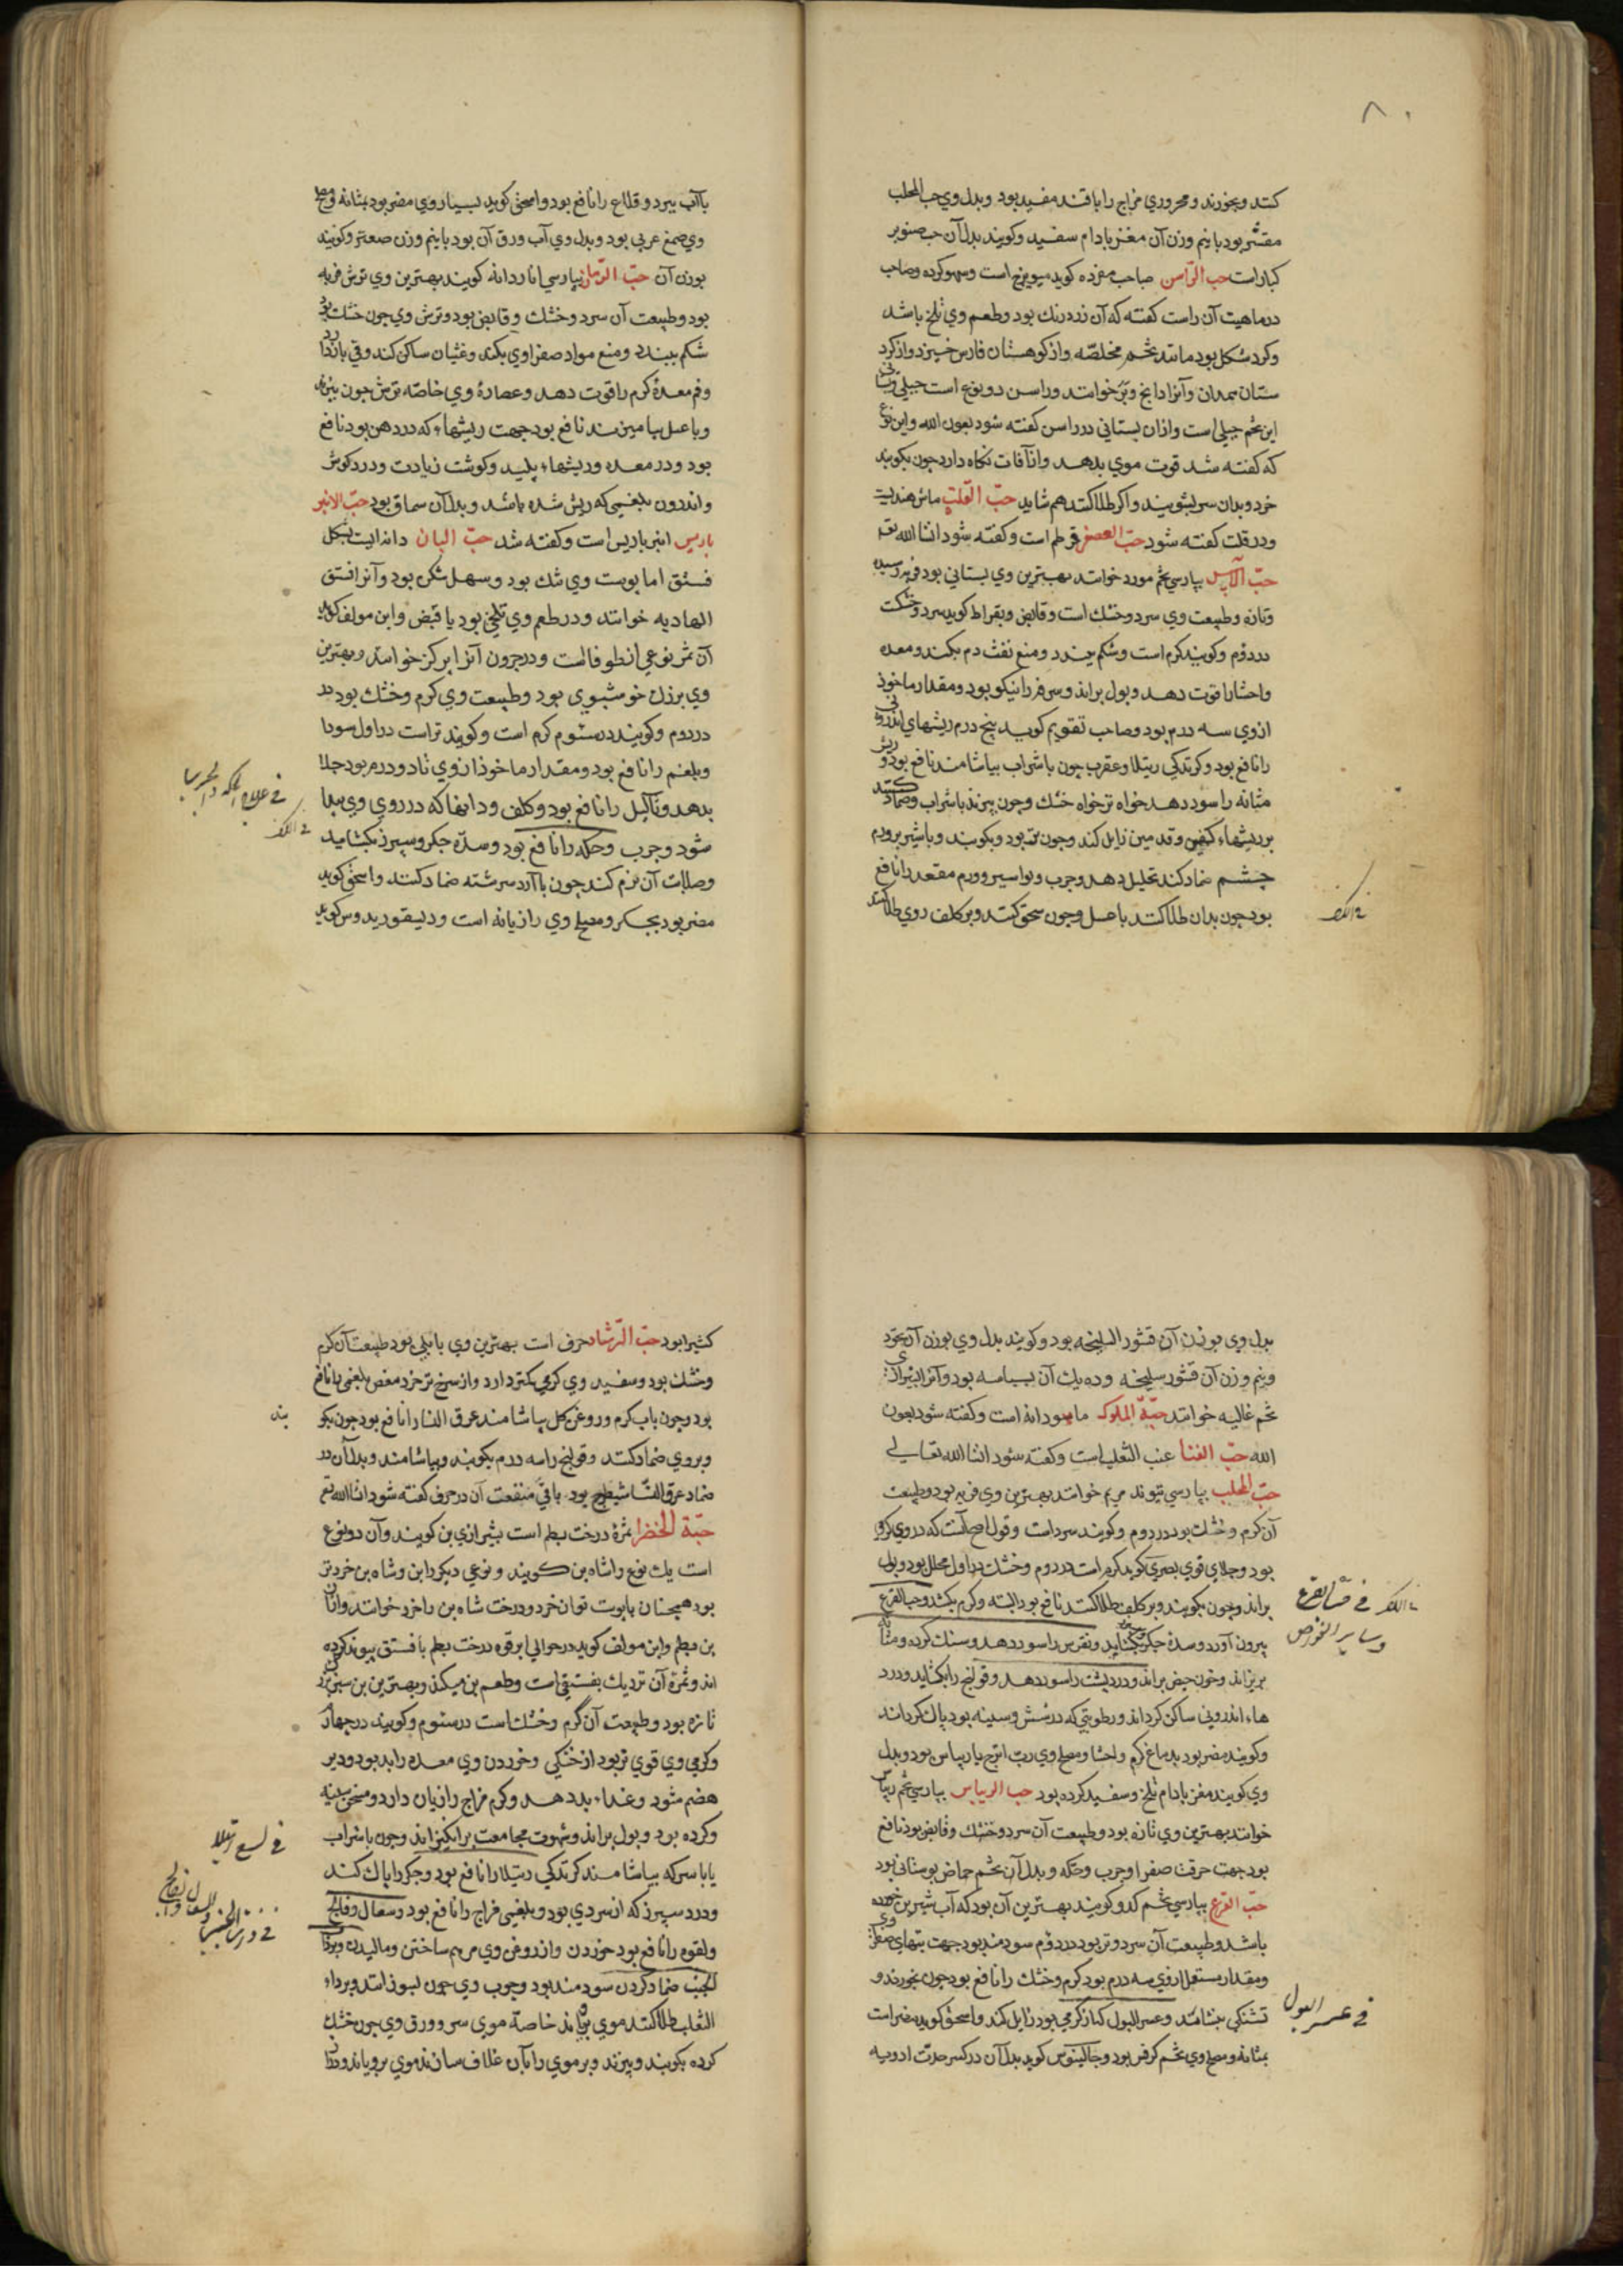 ۸۰
کند و بخورند و محروری مزاج را با قند مفید بود و بدل وی حب المحلب
مقشر بود با نیم وزن آن مغز بادام سفید و کویند بدل آن حب صنوبر
کبار است حب الراسن صاحب مفرده کوید میویزج است و سهو کرده و صاحب
در ماهیت آن راست کفته که آن زرد رنک بود و طعم وی تلخ باشد
و کرد شکل بود مانند تخم مخلصه و از کوهستان فارس خیزد و از کرد
ستان همدان و آنرا دانج وبر خوانند و راسن دو نوع است جبلی و بستانی
این تخم جبلی است و از آن بستانی در راسن کفته شود بعون الله و این نوع
که کفته شد قوت موی بدهد و از آفات نکاه دارد چون بکویند
خرد و بدان سر بشویند و اکر طلا کنند هم شاید حب القلت ماش هندیست
و در قلت کفته شود حب العصفر قرطم است و کفته شود انشا الله تع
حب الآس بپارسی تخم مورد خوانند بهترین وی بستانی بود فربه رسیده
و تازه و طبیعت وی سرد و خشك است و قابض و بقراط کوید سرد و خشکست
در دوم و کویند کرم است و شکم ببندد و منع نفث دم بکند و معده
و احشا را قوت دهد و بول براند و سرفه را نیکو بود و مقدار ماخوذ
از وی سه درم بود و صاحب تقویم کوید پنج درم ریشهای اندرونی
را نافع بود و کزندکی رتیلا و عقرب چون با شراب بیاشامند نافع بود و ریش
مثانه را سود دهد خواه تر خواه خشك و چون بپزند با شراب و ضماد کنند
بر ریشهاء کفین و قدمین زایل کند و چون تر بود و بکوبند و با شیر بر ورم
چشم ضماد کند تحلیل دهد و جرب و بواسیر و ورم مقعد را نافع
بود چون بدان طلا کنند با عسل و چون سحق کنند و بر کلف روی طلا کنند
با آب ببرد و قلاع را نافع بود و اسحق کوید بسیار وی مضر بود بمثانه و مصلح
وی صمغ عربی بود و بدل وی آب ورق آن بود با نیم وزن صعتر و کویند
بوزن آن حب الرمان بپارسی اناردانه کویند بهترین وی ترش فربه
بود و طبیعت آن سرد و خشك و قابض بود و ترش وی چون خشك بود
شکم ببندد و منع مواد صفراوی بکند و غثیان ساکن کند و قی باز دارد
و فم معده کرم را قوت دهد و عصارۀ وی خاصه ترش چون بپزند
و با عسل بیامیزند نافع بود جهت ریشهاء که در دهن بود نافع
بود و در معده و ریشهاء پلید و کوشت زیادت و درد کوش
و اندرون بلغمی که ریش شده باشد و بدل آن سماق بود حب الانبر
باریس انبرباریس است و کفته شد حب البان دانه ایست بشکل
فستق اما پوست وی تنك بود و سهل شکن بود و آنرا فستق
الهادیه خوانند و در طعم وی تلخی بود با قبض و ابن مولف کوید
آن ثمر نوعی از طوفا است و در جرون آنرا بر کز خوانند و بهترین
وی بزرك خوشبوی بود و طبیعت وی کرم و خشك بود در
در دوم و کویند در سوم کرم است و کویند تر است در اول سودا
و بلغم را نافع بود و مقدار ماخوذ از وی تا دو درم بود جلا
بدهد و ثآلیل را نافع بود و کلف و دانها که در روی وی پیدا
شود و جرب و حکه را نافع بود و سده جکر و سپرز بکشاید
و صلابات آن نرم کند چون با آرد سرشته ضماد کنند و اسحق کوید
مضر بود بجکر و مصلح وی رازیانه است و دیسقوریدوس کوید
بدل وی بوزن آن قشور السلیخه بود و کویند بدل وی بوزن آن
و نیم وزن آن قشور سلیخه و ده یك آن بسباسه بود و آنرا بشیرازی
تخم غالیه خوانند حبة الملوك ماهودانه است و کفته شود بعون
الله حب الفنا عنب الثعلب است و کفته شود انشا الله تعالی
حب المحلب بپارسی نیوند مریم خوانند بهترین وی فربه بود و طبیعت
آن کرم و خشك بود در دوم و کویند سرد است و قول اصح آنست که در وی
بود و جلای قوی بصری کوید کرم است در دوم و خشك در اول محلل بود و بول
براند و چون بکوبند و بر کلف طلا کنند نافع بود البته و کرم بکشد و حب القرع
بیرون آورد و سده جکر بکشاید و نقرس را سود دهد و سنك کرده و مثانه
بریزاند و خون حیض براند و درد پشت را سود دهد و قولنج را بکشاید و درد
هاء اندرونی ساکن کرداند و رطوبتی که در شش و سینه بود پاك کرداند
و کویند مضر بود بدماغ کرم و احشا و مصلح وی رب اترج یا ریباس بود و بدل
وی کویند مغز بادام تلخ و سفید کرده بود حب الریباس بپارسی تخم ریباس
خوانند بهترین وی تازه بود و طبیعت آن سرد و خشك و قابض بود نافع
بود جهت حرقت صفرا و جرب و حکه و بدل آن تخم حماض بوستانی بود
حب القرع بپارسی تخم کدو کویند بهترین آن بود که آب شیرین خورده
باشد و طبیعت آن سرد و تر بود در دوم سودمند بود جهت تبهای صفراوی
و مقدار مستعمل از وی سه درم بود کرم و خشك را نافع بود چون بخورند و
تشنکی بنشاند و عسر البول که از کرمی بود زایل کند و اسحق کوید مضر است
بمثانه و مصلح وی تخم کرفس بود و جالینوس کوید بدل آن در کسر حدت ادویه
فی عسر البول
کثیرا بود حب الرشاد حرف است بهترین وی بابلی بود طبیعت آن کرم
و خشك بود و سفید وی کرمی کمتر دارد و از سرخ تر خرد مغص بلغمی را نافع
بود و چون بآب کرم و روغن کل بیاشامند عرق النسا را نافع بود چون بکو
بند
و بر وی ضماد کنند و قولنج را سه درم بکوبند و بیاشامند و بدل آن در
ضماد عرق النسا شیطرج بود باقی منفعت آن در حرف کفته شود انشا الله تع
حبة الخضرا ثمرۀ درخت بطم است بشیرازی بن کویند و آن دو نوع
است یك نوع را شاه بن کویند و نوعی دیکر را بن و شاه بن خرد تر
بود همچنان با پوست توان خورد و درخت شاه بن را خرد خوانند و از آن
بن بطم و ابن مولف کوید در حوالی ابرقوه درخت بطم با فستق پیوند کرده
اند و ثمرۀ آن نزدیك بفستقی است و طعم بن میکند و بهترین بن سبز بزرك
تازه بود و طبیعت آن گرم و خشك است در سوم و کویند در چهارم
و کرمی وی قوی تر بود از خشکی و خوردن وی معده را بد بود و دیر
هضم شود و غذاء بد دهد و کرم مزاج را زیان دارد و مسخن سینه
و کرده بود و بول براند و شهوت مجامعت برانکیزاند و چون با شراب
یا با سرکه بیاشامند کزندکی رتیلا را نافع بود و جکر را پاك کند
و درد سپرز که از سردی بود و بلغمی مزاج را نافع بود و سعال و فالج
و لقوه را نافع بود خوردن و از روغن وی مرهم ساختن و مالیدن و بر ذات
الجنب ضماد کردن سودمند بود و چوب وی چون بسوزانند و بر داء
الثعلب طلا کنند موی برویاند خاصۀ موی سر و ورق وی چون خشك
کرده بکوبند و بپزند و بر موی را بآن غلاف سازند موی برویاند و دراز
فی لسع الرتیلا